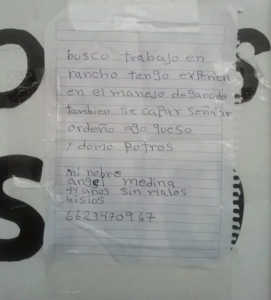 busco trabajo en
rancho tengo exprien
en el manejo de ganado
tambien se capar señalar
ordeño ago queso
y domo potros
mi nobre
angel medina
44 años sin malos
bisios
6623470967